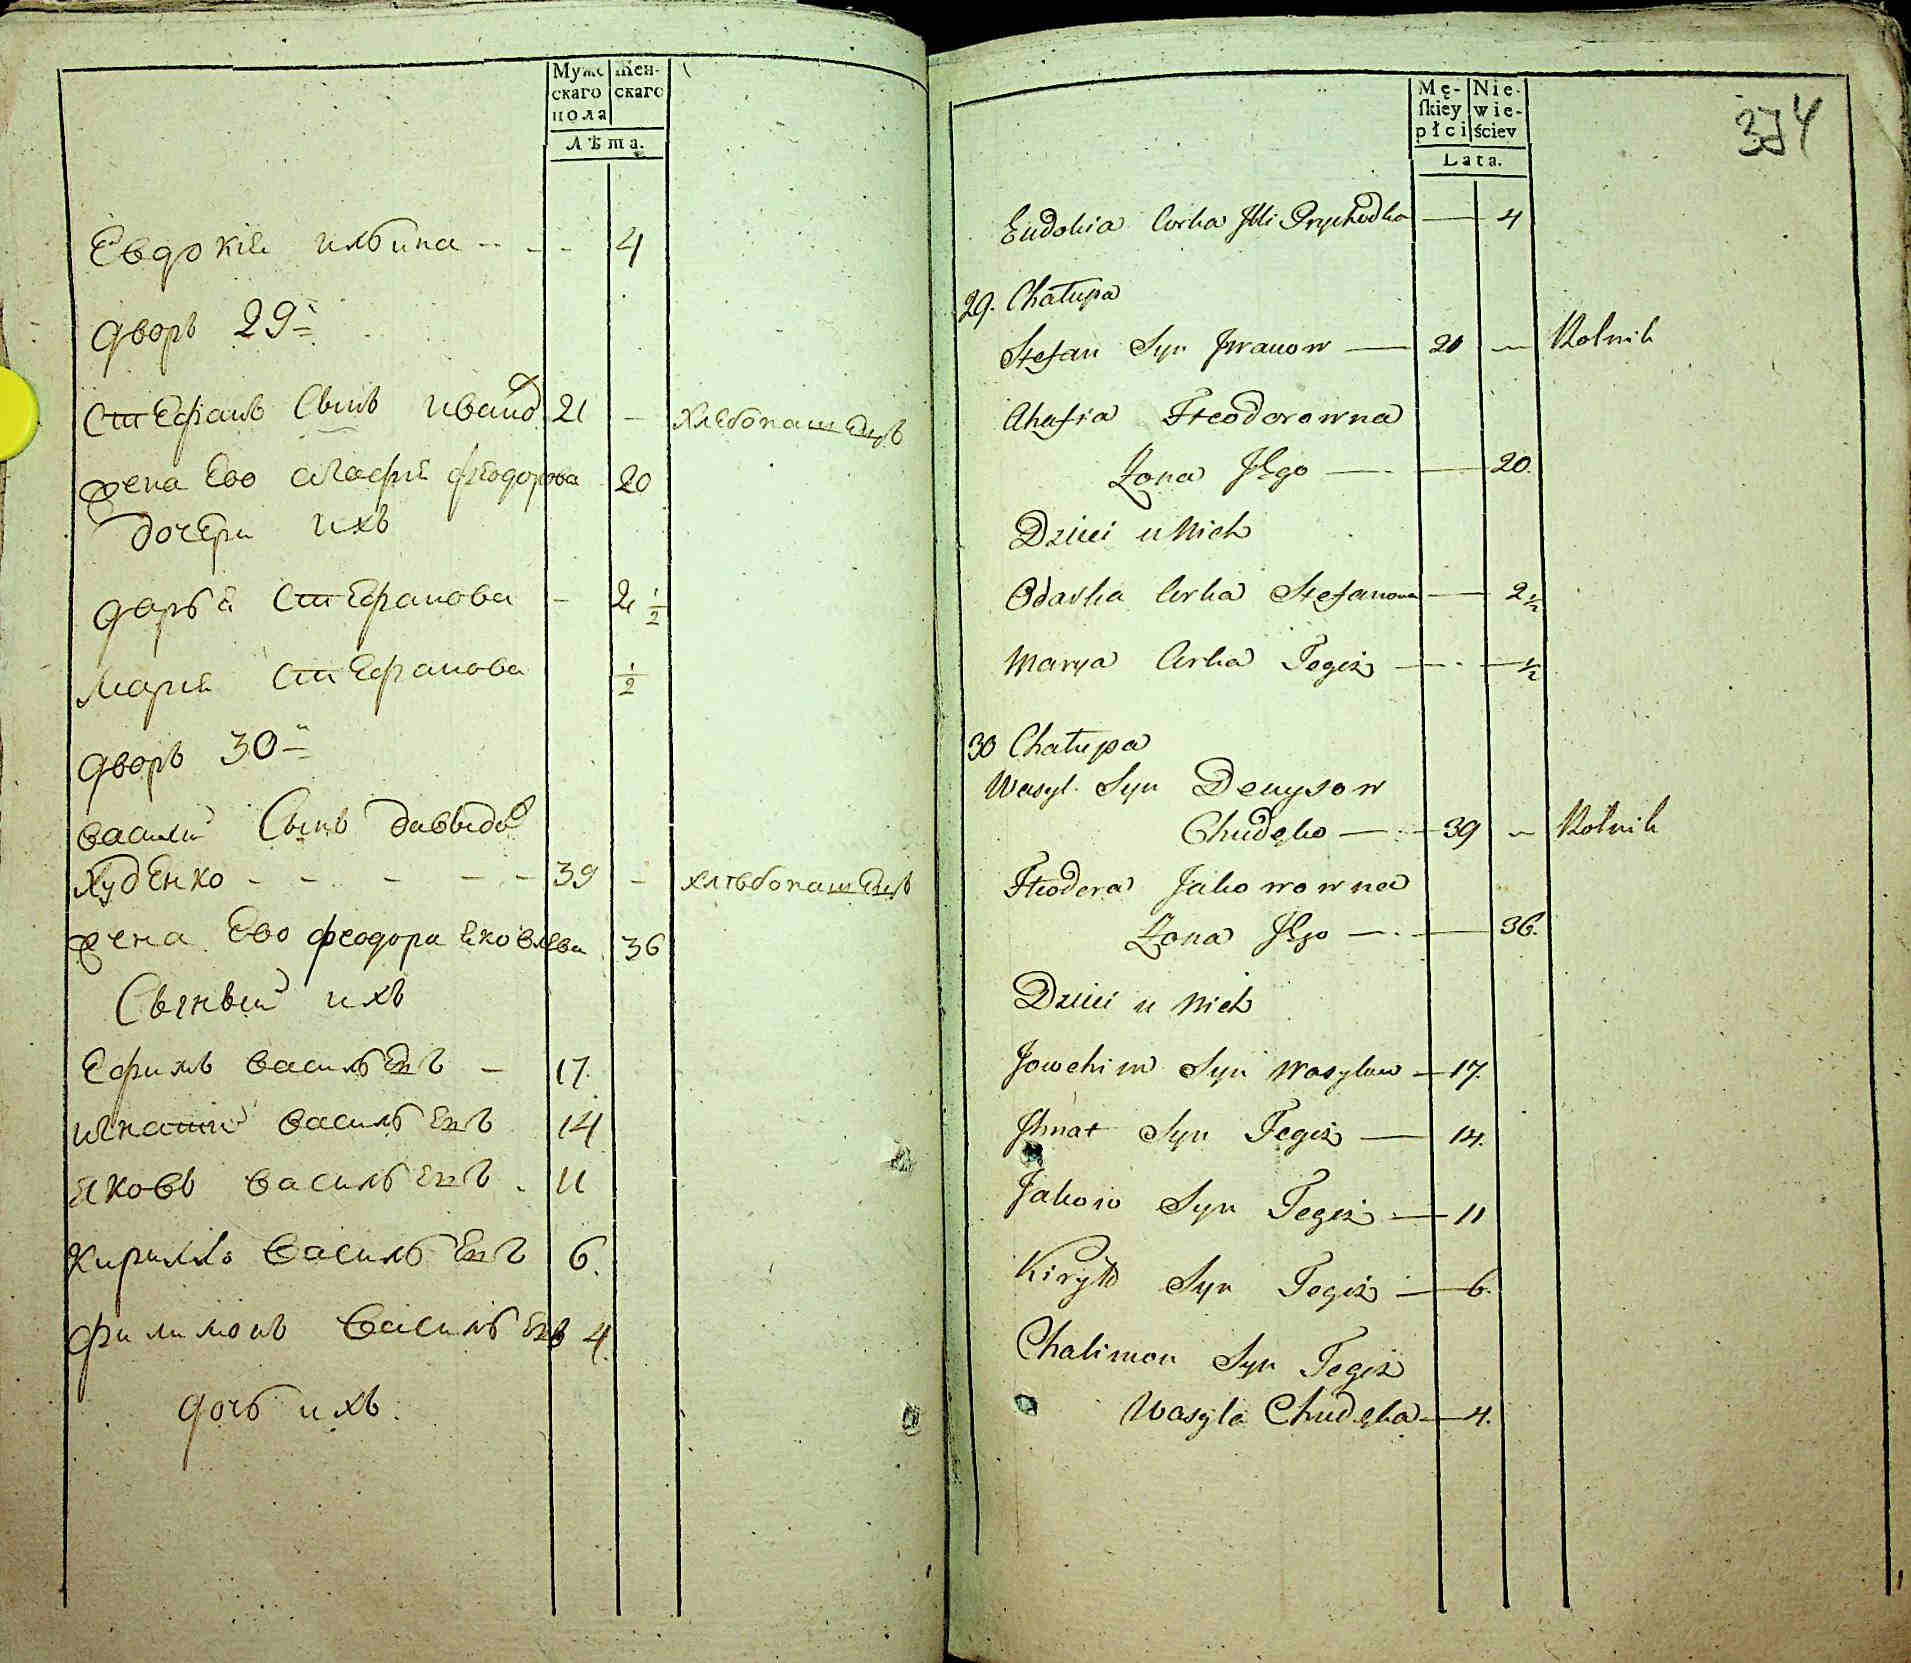 Мужс Жен-
скаго скаго
пола
Лѣта.
Евдокія ильина - - - 4
дворъ 29й
Стефанъ Сынъ иванов 21 - хлебопашецъ
жена Ево агафія феодорова 20
дочери ихъ
дарья Стефанова - 2 1/2
Марія Стефанова 1/2
дворъ 30й
василий Сынъ давыдов
Худенко - - - - - 39 - хлѣбопашецъ
жена Ево феодора яковлева 36
Сыновьи ихъ
Ефимъ васильевъ - 17
игнатий васильевъ 14
яковъ васильевъ . 11
кирилло васильевъ 6.
филимонъ васильевъ 4.
дочь ихъ.
374
Mę- Nie-
skiey wie-
płci ściey
Lata.
Eudokia Corka Jlli Prychodka — 4
29. Chałupa
Stefan Syn Jwanow — 21 — Rolnik
Ahafia Fteodorowna
Zona Jego — 20.
Dzieci u Nich
Odarka Corka Stefanowa — 2 1/2
Marya Corka Tegiż — 1/2
30 Chałupa
Wasyl Syn Denysow
Chudęko — 39 — Rolnik
Fteodora Jakowowna
Zona Jego — 36.
Dzieci u Nich
Jowchim Syn Wasylow — 17.
Jhnat Syn Tegiż — 14.
Jakow Syn Tegiż — 11
Kiryło Syn Tegiż — 6.
Chalimon Syn Tegiż
Wasyla Chudęka — 4.